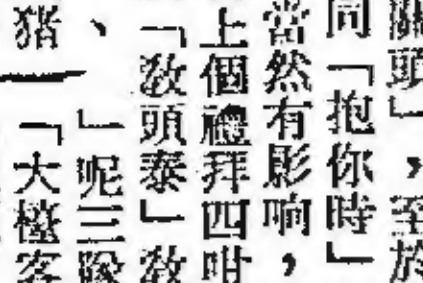 關頭」，至於
同「抱你時」
當然有影响，
上個禮拜四咁
「教頭泰」教
、」呢三隊
猪「大檯客